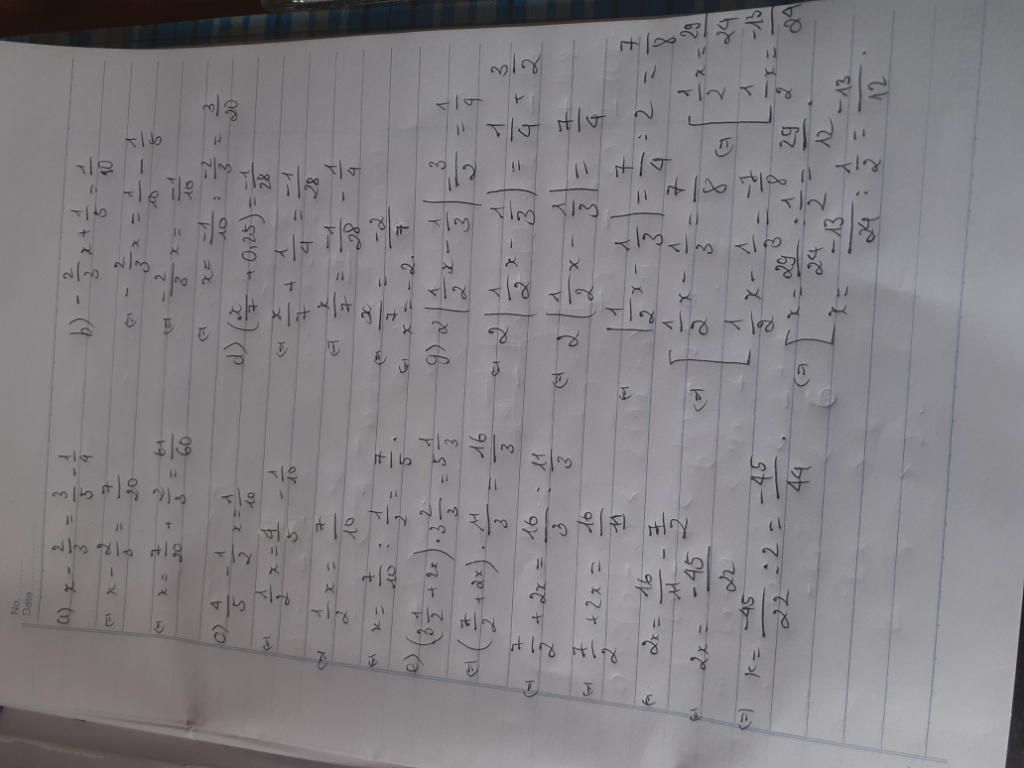 No.
Date
a) x - 2/3 = 3/5 - 1/4
(=) x - 2/3 = 7/20
(=) x = 7/20 + 2/3 = 61/60
c) 4/5 - 1/2 x = 1/10
(=) 1/2 x = 4/5 - 1/10
(=) 1/2 x = 7/10
(=) x = 7/10 : 1/2 = 7/5.
e) (3 1/2 + 2x) . 3 2/3 = 5 1/3
(=) (7/2 + 2x) . 11/3 = 16/3
(=) 7/2 + 2x = 16/3 : 11/3
(=) 7/2 + 2x = 16/11
(=) 2x = 16/11 - 7/2
(=) 2x = -45/22
(=) x = -45/22 : 2 = -45/44.
b) - 2/3 x + 1/5 = 1/10
(=) - 2/3 x = 1/10 - 1/5
(=) - 2/3 x = -1/10
(=) x = -1/10 : -2/3 = 3/20
d) (x/7 + 0,25) = -1/28
(=) x/7 + 1/4 = -1/28
(=) x/7 = -1/28 - 1/4
(=) x/7 = -2/7
(=) x = -2.
g) 2 | 1/2 x - 1/3 | - 3/2 = 1/4
(=) 2 | 1/2 x - 1/3 | = 1/4 + 3/2
(=) 2 | 1/2 x - 1/3 | = 7/4
(=) | 1/2 x - 1/3 | = 7/4 : 2 = 7/8
(=) [ 1/2 x - 1/3 = 7/8
1/2 x - 1/3 = -7/8
(=) [ 1/2 x = 29/24
1/2 x = -13/24
(=) [ x = 29/24 : 1/2 = 29/12.
x = -13/24 : 1/2 = -13/12.